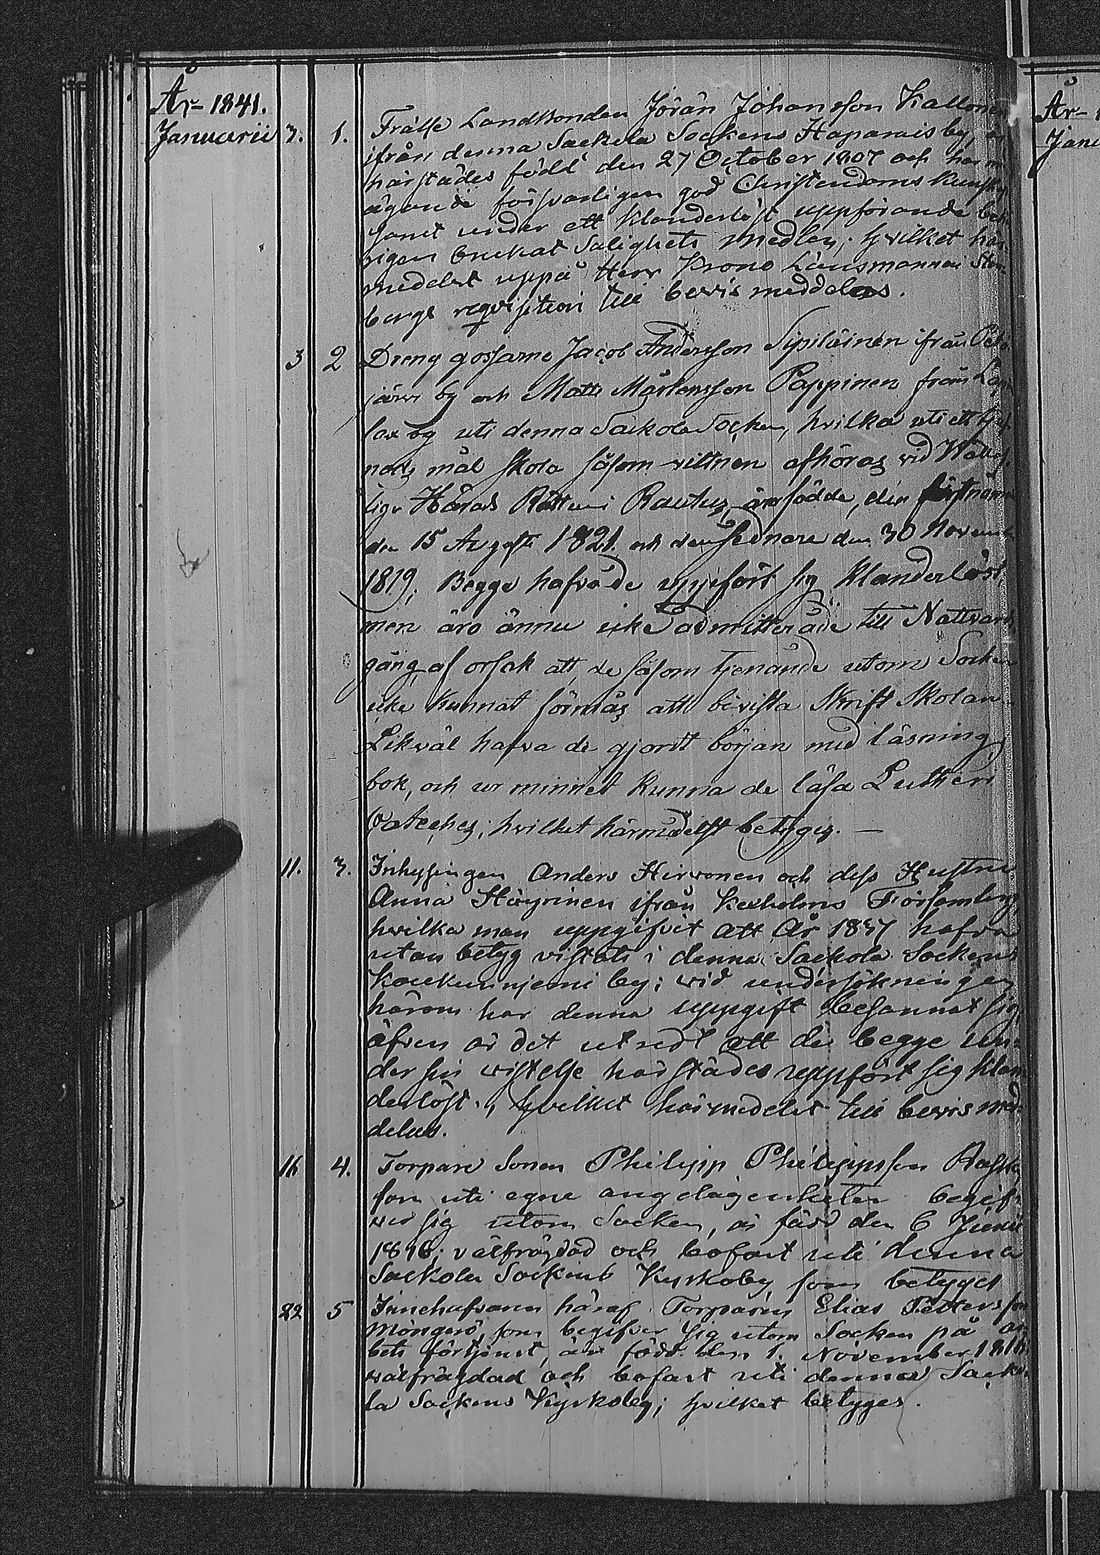 År 1841.
Januarii 3. 1. Frälse Landbonden Jöran Johansson
ifrån denna Sackola Sockens Haparais by, är
härstädes född den 27 October 1807 och har
ägande försvarligen god Christendoms
samt under ett klanderlöst uppförande
rigen brukat Salighets medlen; hvilket här
medelst uppå Herr Krono Länsmannen
bergs reqvisition till bevis meddelas.
3 2 Dreng gossarne Jacob Andersson Sipiläinen ifrån
järvi by och Matts Mårtensson Pappinen från
lax by uti denna Sackola Socken, hvilka uti ett
nads mål skola såsom vittnen afhöras vid
lige Härads Rätten i Rautus, äro födde, den förstnämnde
den 15 Augusti 1821 och den sednare den 30 November
1819. Begge hafva de uppfört sig klanderlöst
men äro ännu icke admitterade till Nattvard
gång af orsak att de såsom tjenande utom Socken
icke kunnat förmås att bevista Skrift Skolan
Likväl hafva de gjordt början med läsning
bok, och ur minnet kunna de läsa Lutheri
Cateches, hvilket härmedelst betyges. —
11. 3. Inhysingen Anders Hirvonen och dess Hustru
Anna Häyrinen ifrån Kexholms Församling
hvilka man uppgifvit att År 1837 hafva
utan betyg vistats i denna Sackola Sockens
by; vid undersökningen
härom har denna uppgift besannat sig
äfven är det utredt att de begge un-
der sin vistelse härstädes uppfört sig klan
derlöst; hvilket härmedelst till bevis med-
delas.
16 4. Torpare Sonen Philipp Philippsson
som uti egne angelägenheter begif-
ver sig utom Socken, är född den 6 Junii
1816; välfrägdad och bofast uti denna
Sackola Sockens Kyrkoby som betyges
22 5 Innehafvaren häraf Torparen Elias Pettersson
som begifver sig utom Socken på ar
bets förtjenst, är född den 1. November
välfrägdad och bofast uti denna Sacko
la Sockens Kyrkoby; hvilket betyges.
År